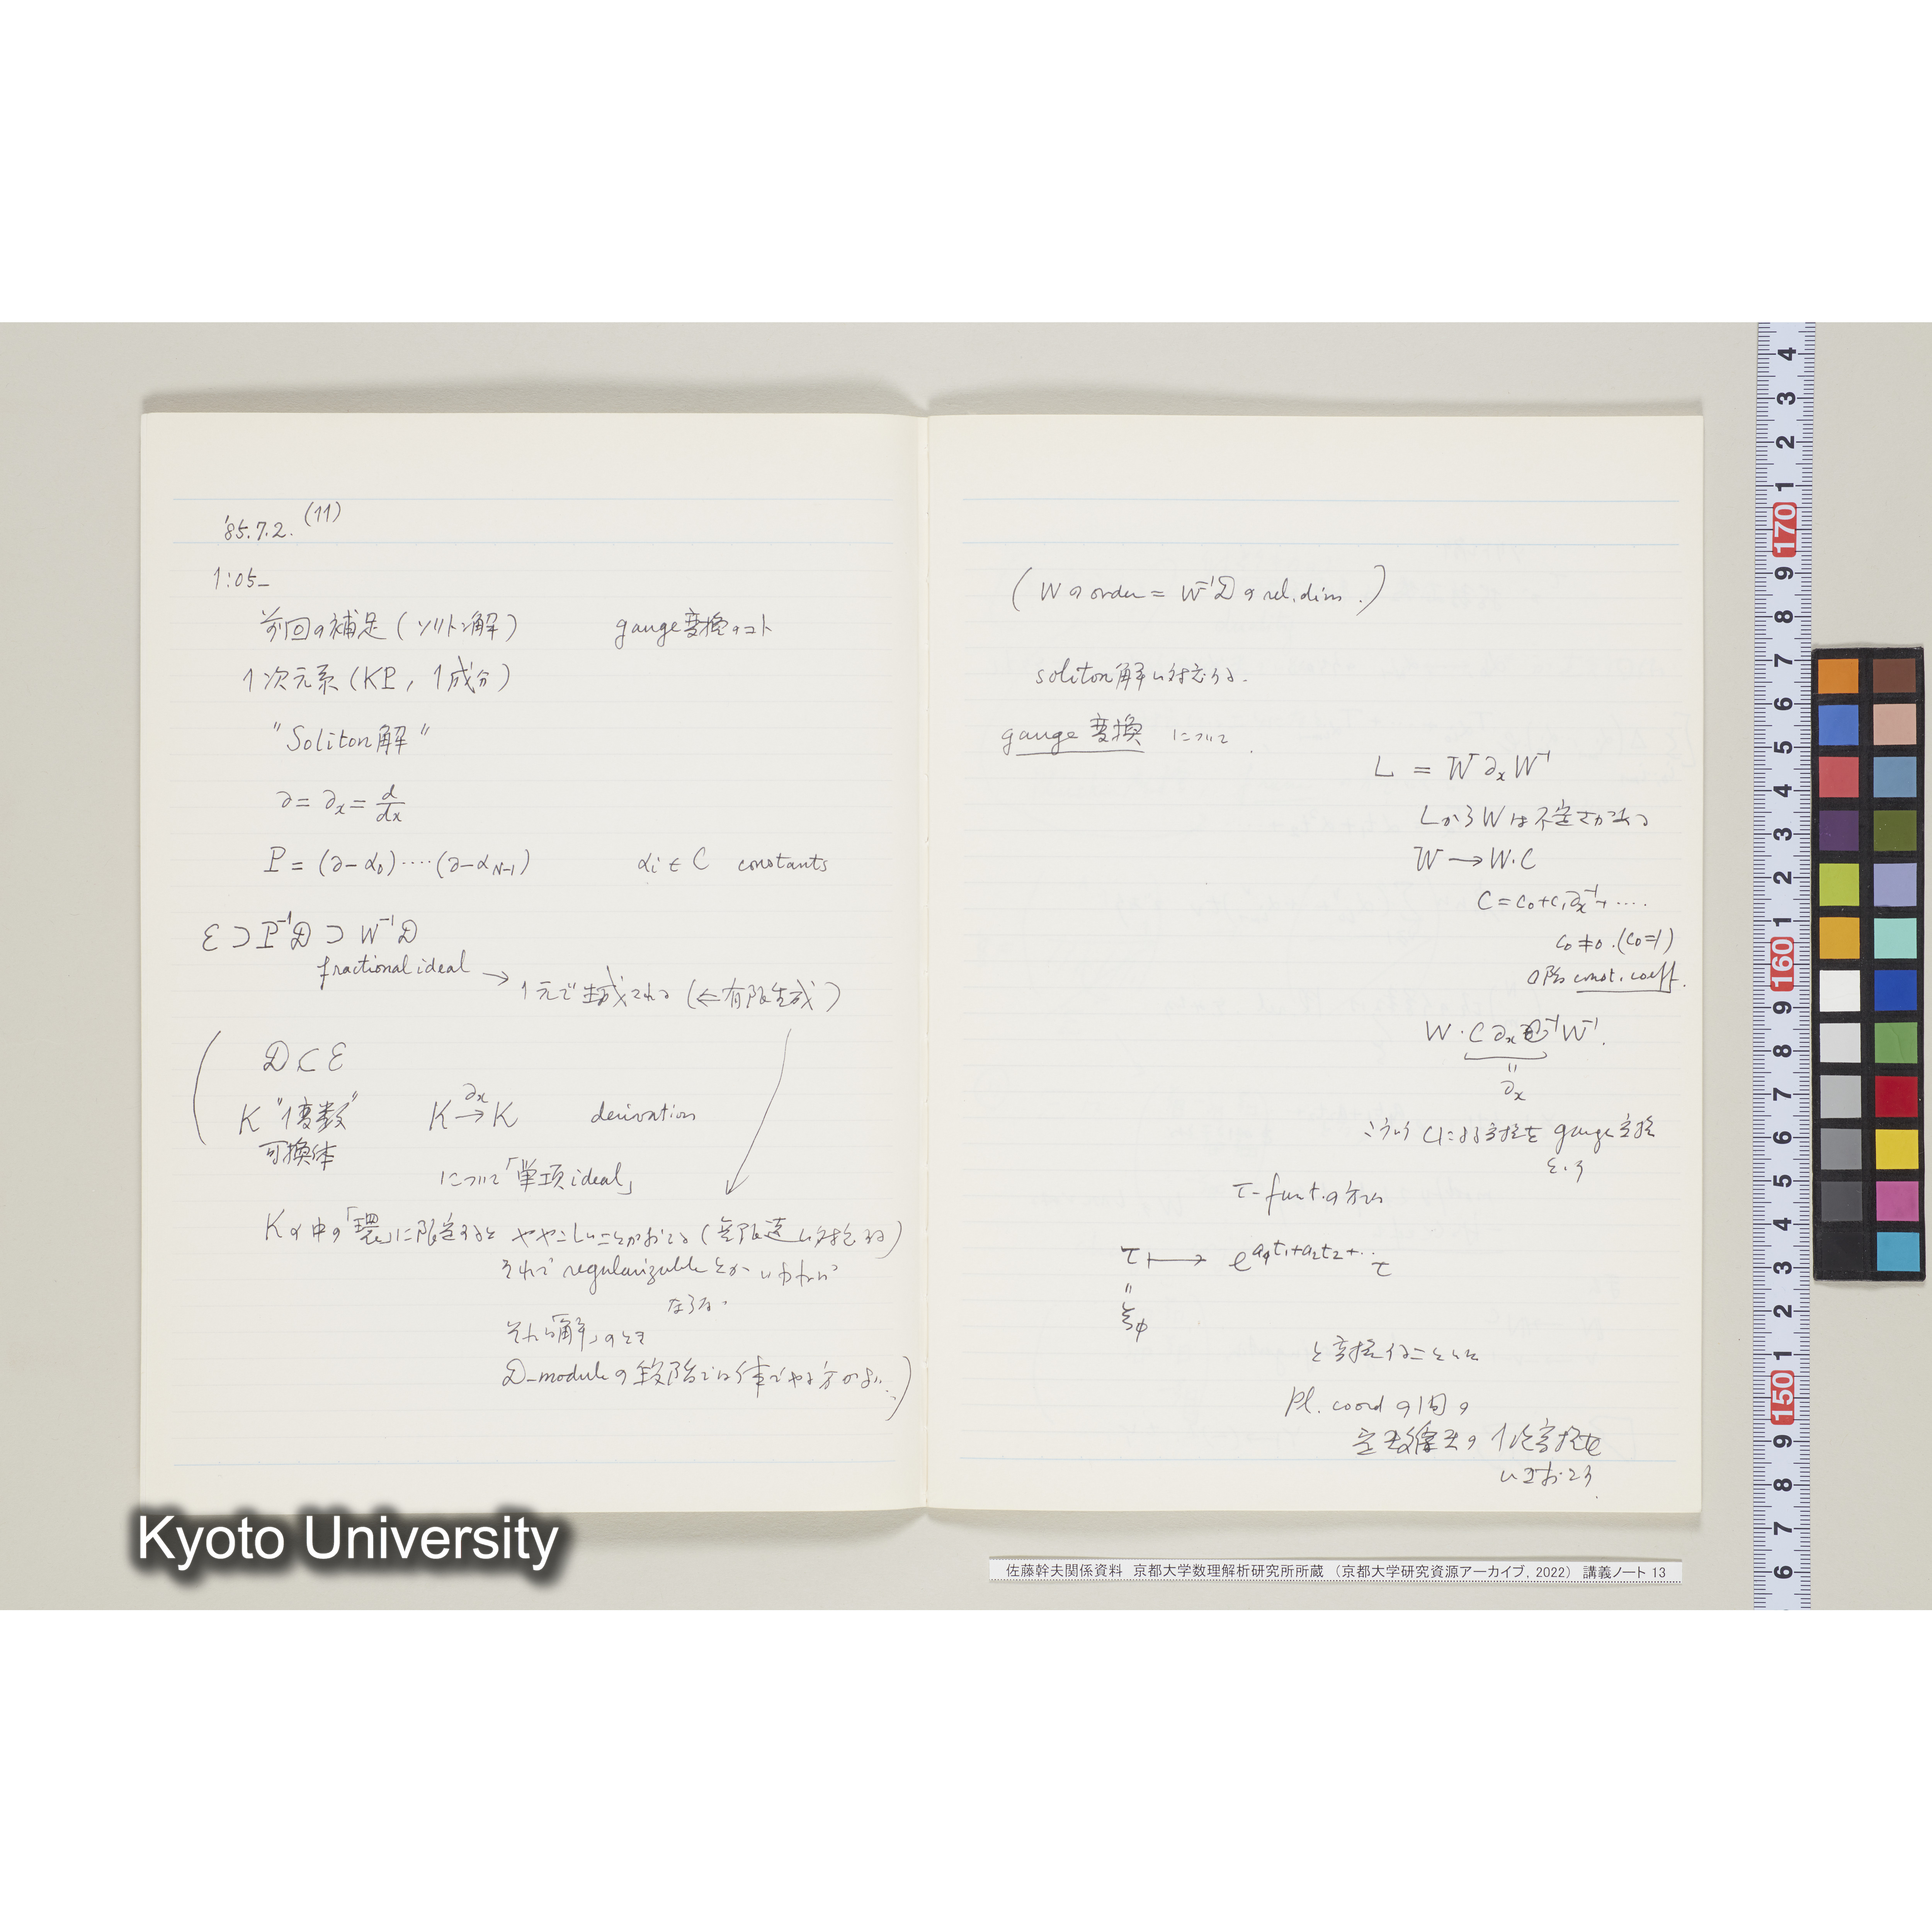 '85.7.2. (11)
1:05–
前回の補足(ソリトン解) gauge変換のコト
1次元系(KP, 1成分)
"Soliton解"
∂ = ∂x = d/dx
P = (∂−α0)····(∂−αN−1) αi ∈ C constants
ℰ ⊃ P⁻¹𝒟 ⊃ W⁻¹𝒟
fractional ideal → 1元で生成される (⇐有限生成)
( 𝒟 ⊂ ℰ
K "1変数" K →∂x K derivation
可換体
について「単項ideal」
Kの中の「環」に限定すると ややこしいことがおこる (無限遠に対応する)
それで regularizable とか いわねば
ならない.
それは「解」のとき
𝒟-moduleの段階では体でやる方がよい…)
(Wのorder = W⁻¹𝒟のrel.dim.)
soliton解に対応する.
gauge変換 について.
L = W∂xW⁻¹
LからWは不定さがある
W → W·C
C = c0+c1∂x⁻¹+····
c0≠0.(c0=1)
const. coeff.
W·C∂xC⁻¹W⁻¹.
"
∂x
こういうCによる変換をgauge変換
という
τ-funct.の方は
τ ↦ e^{a1t1+a2t2+··}τ
"
ξφ
と変換することは
Pl. coordの間の
定数係数の1次変換を
ひきおこす.
Kyoto University
佐藤幹夫関係資料 京都大学数理解析研究所所蔵 (京都大学研究資源アーカイブ, 2022) 講義ノート 13
4
3
2
1
170
9
8
7
6
5
4
3
2
1
160
9
8
7
6
5
4
3
2
1
150
9
8
7
6